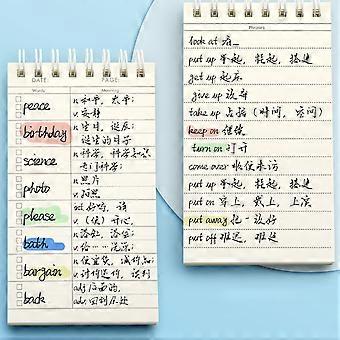 DATE: PAGE:
Words Meaning
peace n.和平，太平；
v.安静
birthday n.生日，诞辰；
诞生的日子
science n.科学，科学知识
专门科学
photo n.照片
v.照片
please int.好吗，请
v.(使)开心，
bath n.洗处，浴室；
v.给…洗澡；
bargain n.便宜货，减价品；
v.讨价还价，谈判
back adj.后面的，
adv.回到原处
Phrases
look at 看
put up 举起，提起，搭建
get up 起床
give up 放弃
take up 占据（时间，空间）
keep on 继续
turn on 打开
come over 顺便来访
put up 举起，提起，搭建
put on 穿上，戴上，上演
put away 把…放好
put off 推迟，拖延